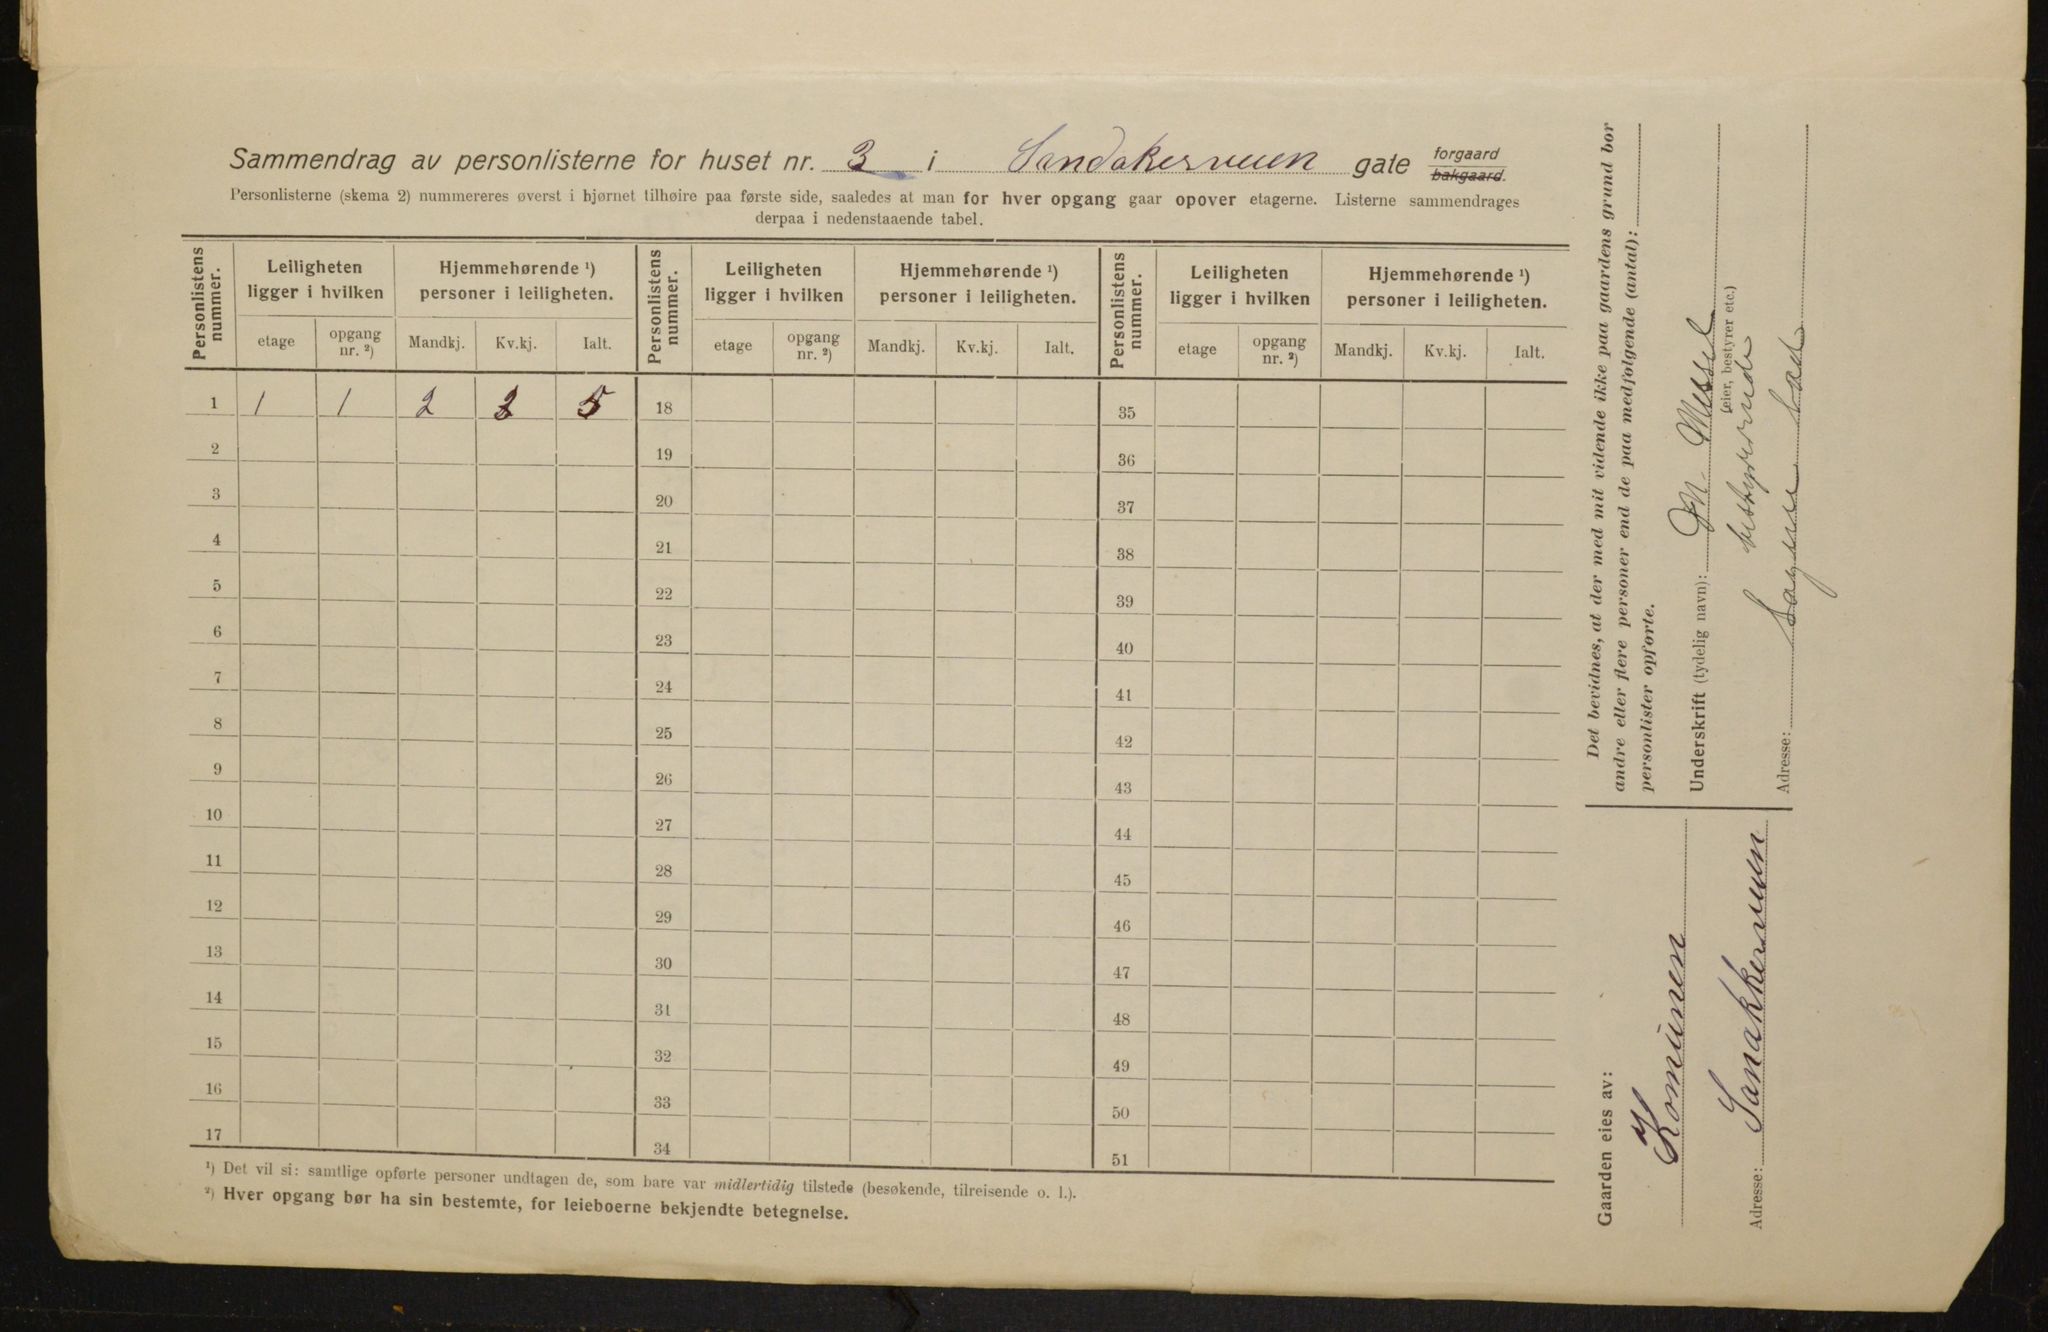 Sammendrag av personlisterne for huset nr. 3 i Sandakerveien gate forgaard bakgaard.
Personlisterne (skema 2) nummereres øverst i hjørnet tilhøire paa første side, saaledes at man for hver opgang gaar opover etagerne. Listerne sammendrages
derpaa i nedenstaaende tabel.
Personlistens nummer. Leiligheten ligger i hvilken Hjemmehørende ¹) personer i leiligheten. Personlistens nummer. Leiligheten ligger i hvilken Hjemmehørende ¹) personer i leiligheten. Personlistens nummer. Leiligheten ligger i hvilken Hjemmehørende ¹) personer i leiligheten.
etage opgang nr. ²) Mandkj. Kv.kj. Ialt. etage opgang nr. ²) Mandkj. Kv.kj. Ialt. etage opgang nr. ²) Mandkj. Kv.kj. Ialt.
1 1 1 2 3 5 18 35
2 19 36
3 20 37
4 21 38
5 22 39
6 23 40
7 24 41
8 25 42
9 26 43
10 27 44
11 28 45
12 29 46
13 30 47
14 31 48
15 32 49
16 33 50
17 34 51
¹) Det vil si: samtlige opførte personer undtagen de, som bare var midlertidig tilstede (besøkende, tilreisende o. l.).
²) Hver opgang bør ha sin bestemte, for leieboerne bekjendte betegnelse.
Det bevidnes, at der med mit vidende ikke paa gaardens grund bor
andre eller flere personer end de paa medfølgende (antal):
personlister opførte.
Underskrift (tydelig navn): M. Messel
(eier, bestyrer etc.)
bestyrende
Adresse:
Gaarden eies av:
Komunen
Adresse: Sanakkerveien